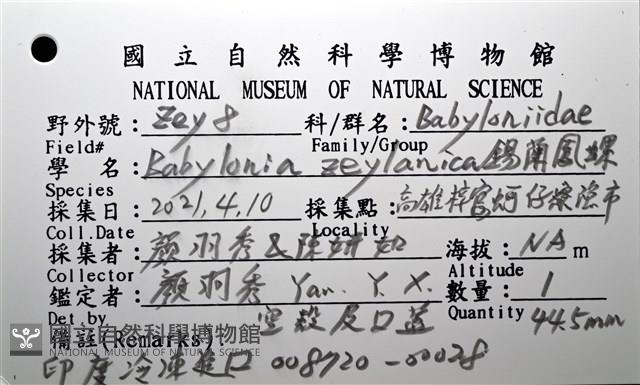 國立自然科學博物館
NATIONAL MUSEUM OF NATURAL SCIENCE
野外號：Zey 8 科/群名：Babyloniidae
Field# Family/Group
學 名：Babylonia zeylanica 錫蘭鳳螺
Species
採集日：2021.4.10 採集點：高雄梓官蚵仔寮漁市
Coll.Date Locality
採集者：顏羽秀&陳妍如 海拔：NA m
Collector Altitude
鑑定者：顏羽秀 Yan. Y. X. 數量：1
Det.by Quantity 44.5mm
備註(Remarks)： 空殼及口蓋
國立自然科學博物館
NATIONAL MUSEUM OF NATURAL SCIENCE
印度冷凍進口 008720-00028